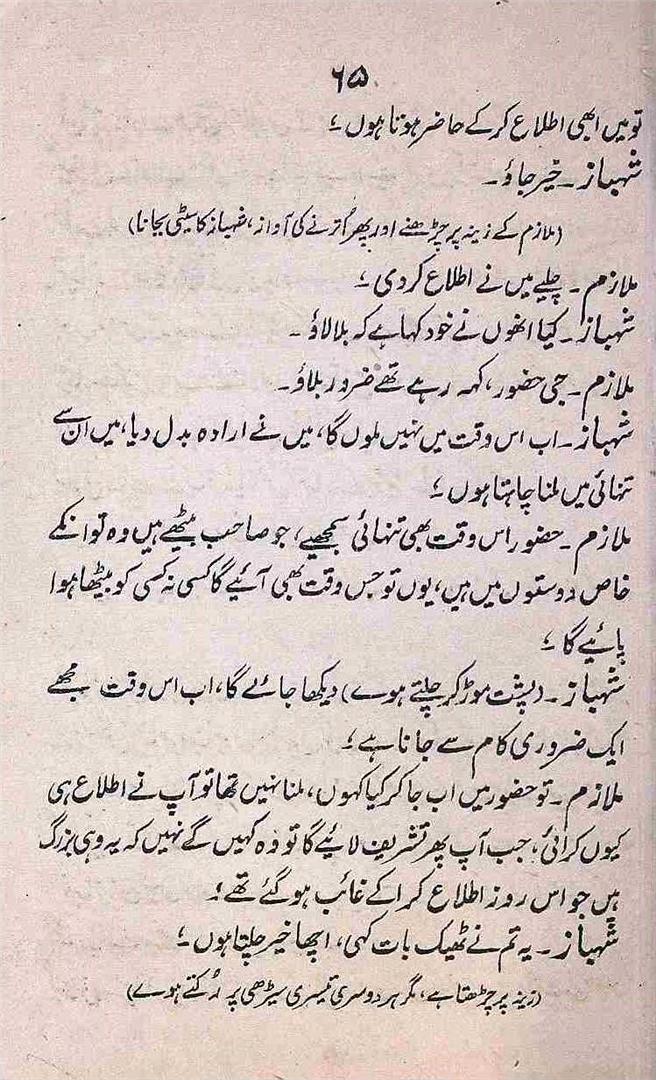 ۶۵
تو میں ابھی اطلاع کر کے حاضر ہوتا ہوں ؛
شہباز ۔ خیر جاؤ ۔
(ملازم کے زینہ پر چڑھنے اور پھر اُترنے کی آواز، شہباز کا سیٹی بجانا)
ملازم ۔ چلیے میں نے اطلاع کر دی ؛
شہباز ۔ کیا انھوں نے خود کہا ہے کہ بلا لاؤ ۔
ملازم ۔ جی حضور، کہہ رہے تھے ضرور بلاؤ ۔
شہباز ۔ اب اس وقت میں نہیں ملوں گا، میں نے ارادہ بدل دیا، میں ان سے
تنہائی میں ملنا چاہتا ہوں ؛
ملازم ۔ حضور اس وقت بھی تنہائی سمجھیے، جو صاحب بیٹھے ہیں وہ تو انکے
خاص دوستوں میں ہیں، یوں تو جس وقت بھی آئیے گا کسی نہ کسی کو بیٹھا ہوا
پائیے گا ؛
شہباز ۔ (پشت موڑ کر چلتے ہوے) دیکھا جائے گا، اب اس وقت مجھے
ایک ضروری کام سے جانا ہے ؛
ملازم ۔ تو حضور میں اب جا کر کیا کہوں، ملنا نہیں تھا تو آپ نے اطلاع ہی
کیوں کرائی، جب آپ پھر تشریف لائیے گا تو وہ کہیں گے نہیں کہ یہ وہی بزرگ
ہیں جو اس روز اطلاع کرا کے غائب ہو گئے تھے ؛
شہباز ۔ یہ تم نے ٹھیک بات کہی، اچھا خیر چلتا ہوں ؛
(زینہ پر چڑھتا ہے، مگر ہر دوسری تیسری سیڑھی پر رُکتے ہوے)